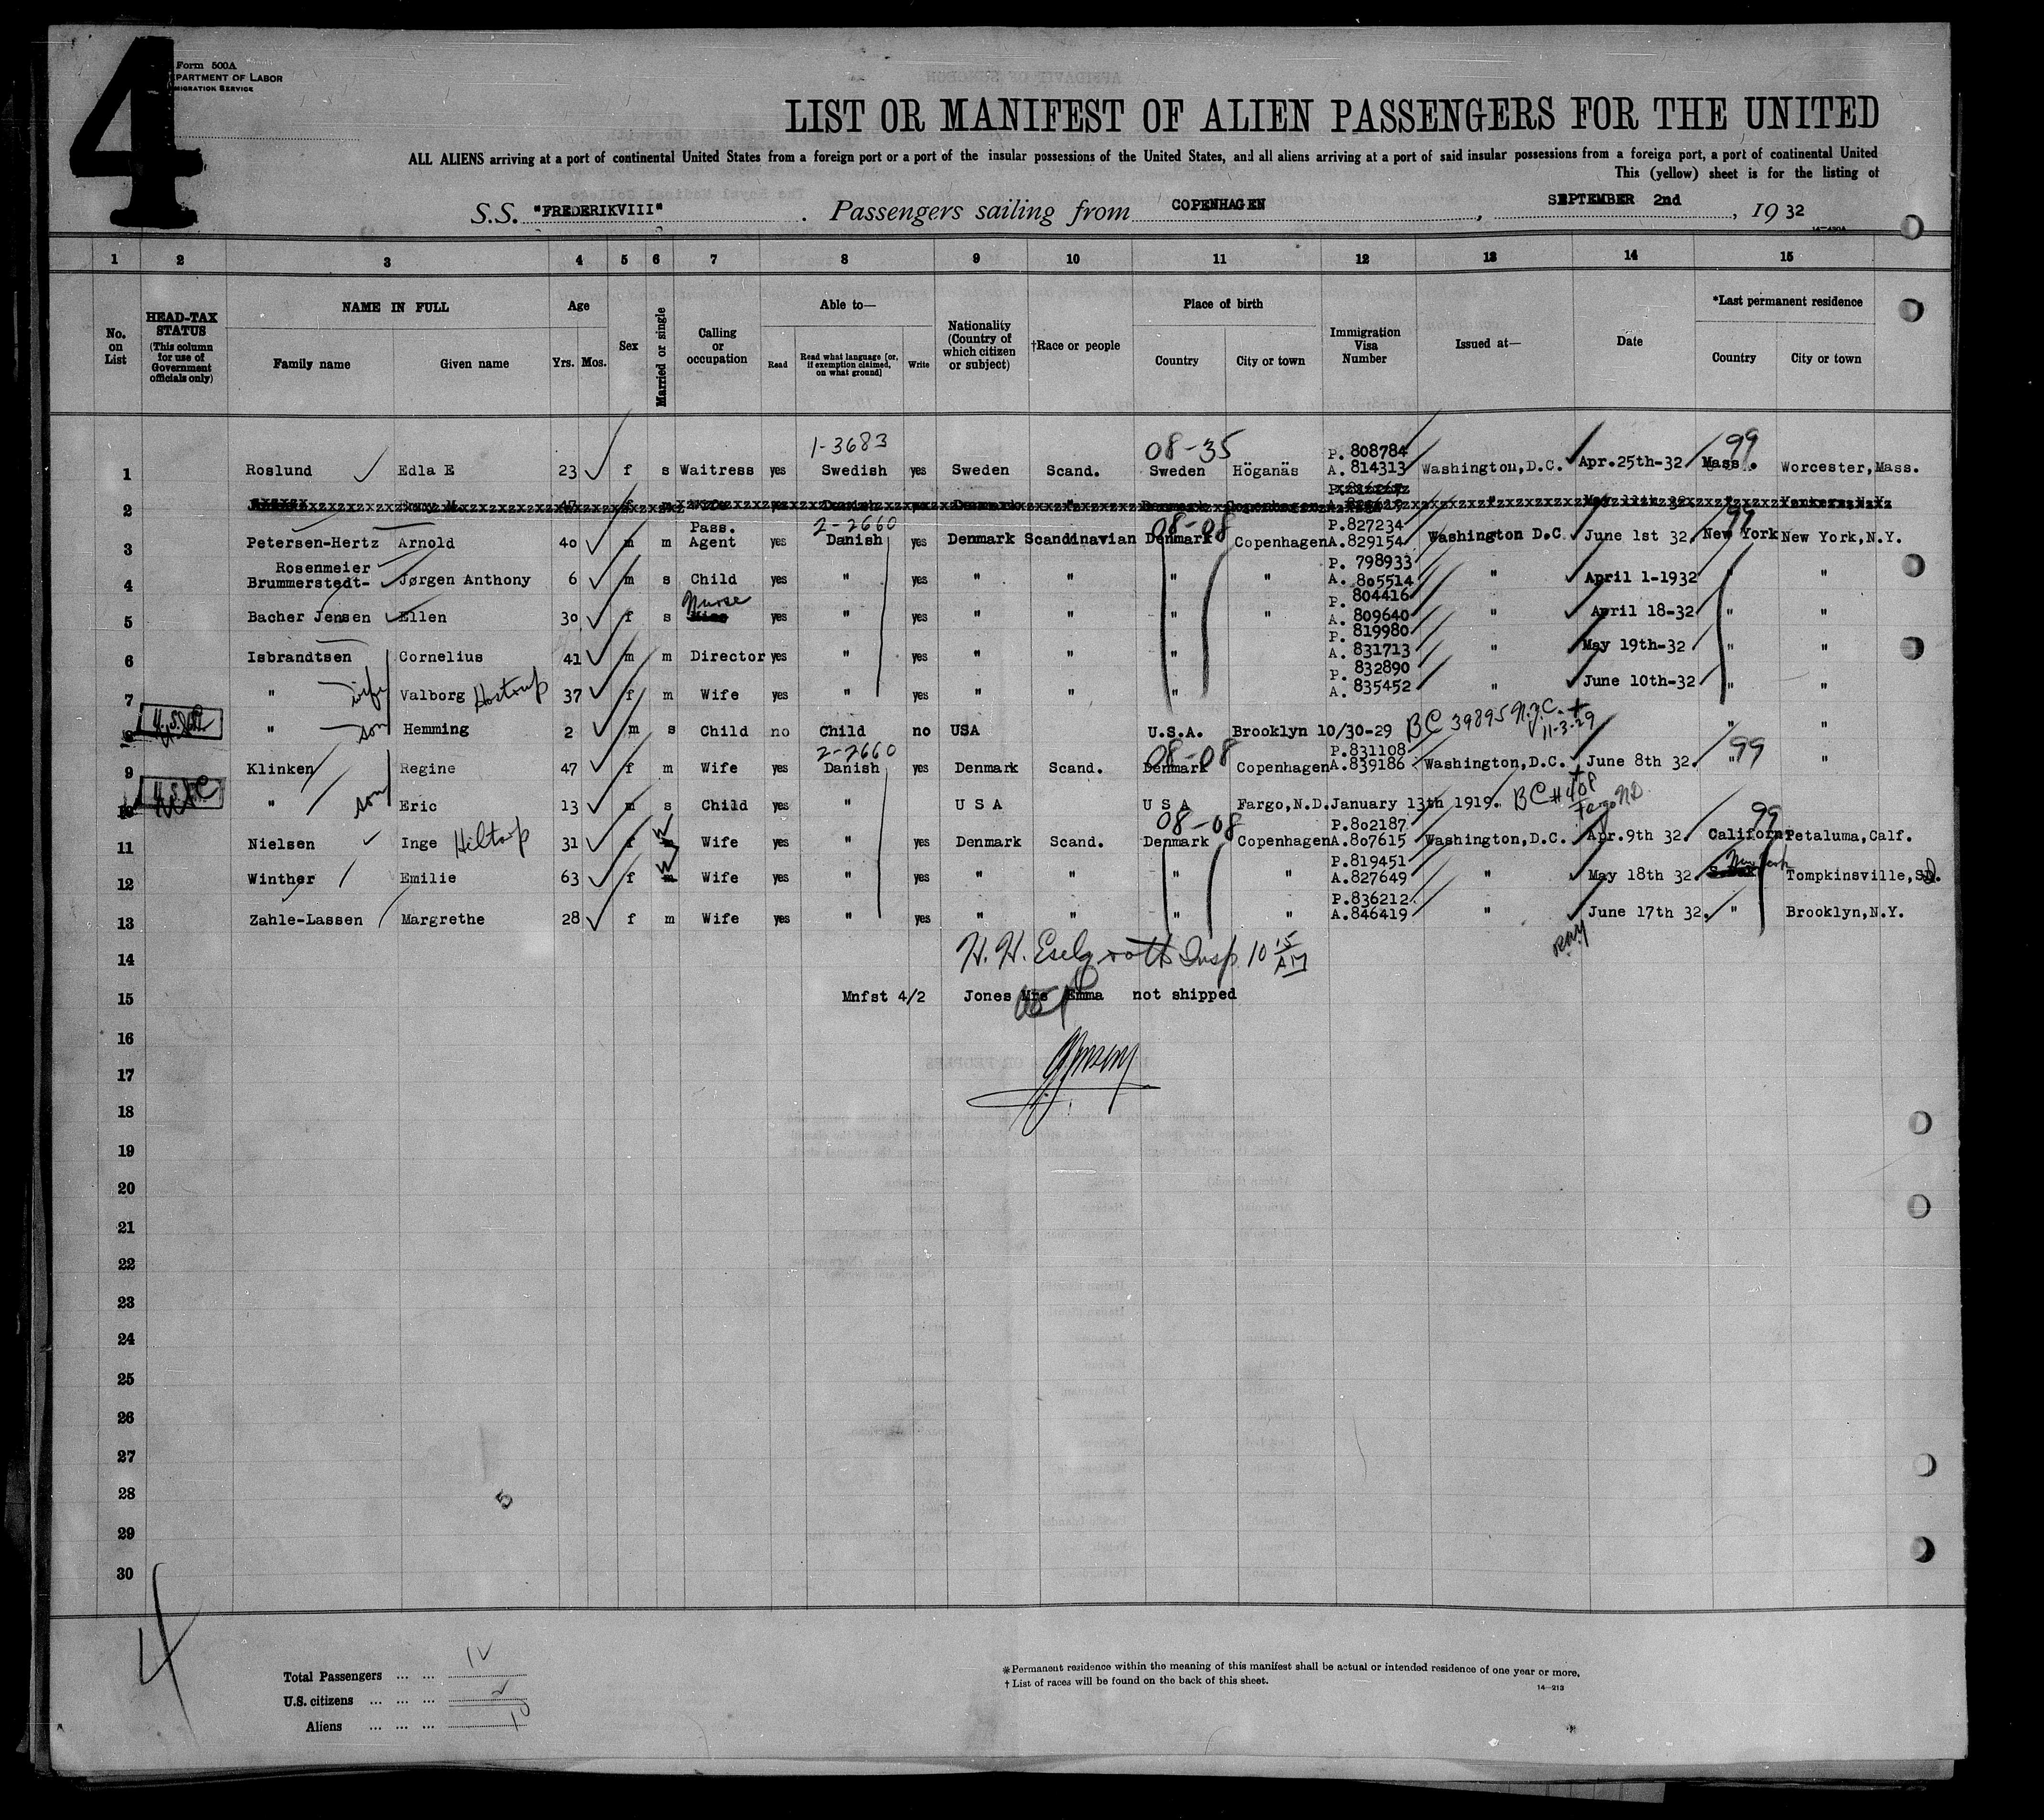 4
Form 500A
DEPARTMENT OF LABOR
IMMIGRATION SERVICE
LIST OR MANIFEST OF ALIEN PASSENGERS FOR THE UNITED
ALL ALIENS arriving at a port of continental United States from a foreign port or a port of the insular possessions of the United States, and all aliens arriving at a port of said insular possessions from a foreign port, a port of continental United
This (yellow) sheet is for the listing of
S.S. "FREDERIKVIII" . Passengers sailing from COPENHAGEN , SEPTEMBER 2nd , 1932
14-430A
1 2 3 4 5 6 7 8 9 10 11 12 13 14 15
No. on List
HEAD-TAX STATUS (This column for use of Government officials only)
NAME IN FULL
Family name Given name
Age
Yrs. Mos.
Sex
Married or single
Calling or occupation
Able to—
Read Read what language [or, if exemption claimed, on what ground] Write
Nationality (Country of which citizen or subject)
†Race or people
Place of birth
Country City or town
Immigration Visa Number
Issued at—
Date
*Last permanent residence
Country City or town
1-3683 08-35 P. 808784 99
1 Roslund Edla E 23 f s Waitress yes Swedish yes Sweden Scand. Sweden Höganäs A. 814313 Washington,D.C. Apr.25th-32 Mass. Worcester,Mass.
2 47 f m Wife yes Danish yes Denmark " Denmark Copenhagen " May 32 " Yonkers N.Y.
Pass. 2-2660 08-08 P.827234 99
3 Petersen-Hertz Arnold 40 m m Agent yes Danish yes Denmark Scandinavian Denmark Copenhagen A.829154 Washington D.C. June 1st 32 New York New York,N.Y.
Rosenmeier P. 798933
4 Brummerstedt- Jørgen Anthony 6 m s Child yes " yes " " " " A. 805514 " April 1-1932 " "
Nurse P. 804416
5 Bacher Jensen Ellen 30 f s yes " yes " " " " A. 809640 " April 18-32 " "
P. 819980
6 Isbrandtsen Cornelius 41 m m Director yes " yes " " " A. 831713 " May 19th-32 " "
P. 832890
7 " wife Valborg Hostrup 37 f m Wife yes " yes " " " A. 835452 " June 10th-32 " "
8 U.S.C. " son Hemming 2 m s Child no Child no USA U.S.A. Brooklyn 10/30-29 BC 39895 N.Y.C. 11-3-29 " "
2-2660 08-08 P.831108 99
9 Klinken Regine 47 f m Wife yes Danish yes Denmark Scand. Denmark Copenhagen A.839186 Washington,D.C. June 8th 32. " "
10 U.S.C. " son Eric 13 m s Child yes " U S A U S A Fargo,N.D. January 13th 1919. BC #408 Fargo N.D.
08-08 P.802187 99
11 Nielsen Inge Hiltorp 31 f m Wife yes " yes Denmark Scand. Denmark Copenhagen A.807615 Washington,D.C. Apr.9th 32. Californ. Petaluma,Calf.
W P.819451 New York
12 Winther Emilie 63 f m Wife yes " yes " " " " A.827649 " May 18th 32 Tompkinsville,S.
P.836212
13 Zahle-Lassen Margrethe 28 f m Wife yes " yes " " " " A.846419 " June 17th 32. " Brooklyn,N.Y.
14 H. H. Insp. 10 15 AM
15 Mnfst 4/2 Jones Mrs Emma not shipped
16
17
18
19
20
21
22
23
24
25
26
27
28
29
30
5
4
Total Passengers ... ... 12
U.S. citizens ... ... ... 2
Aliens ... ... ... 10
*Permanent residence within the meaning of this manifest shall be actual or intended residence of one year or more.
† List of races will be found on the back of this sheet.
14—213